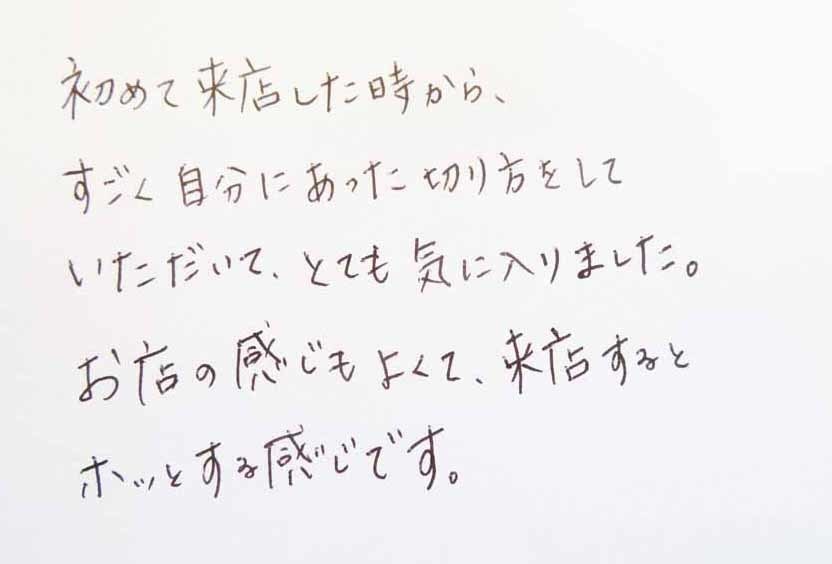 初めて来店した時から、
すごく自分にあった切り方をして
いただいて、とても気に入りました。
お店の感じもよくて、来店すると
ホッとする感じです。